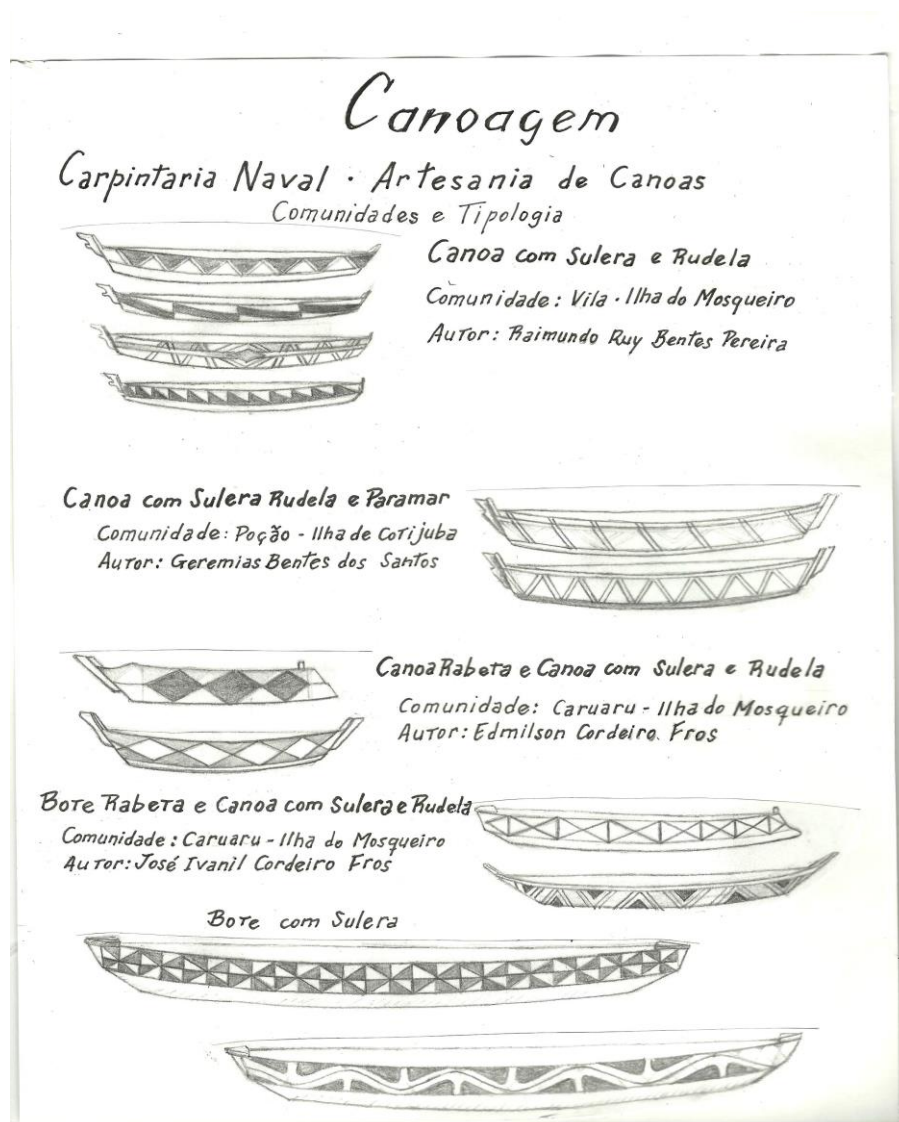 Canoagem
Carpintaria Naval · Artesania de Canoas
Comunidades e Tipologia
Canoa com Sulera e Rudela
Comunidade: Vila · Ilha do Mosqueiro
Autor: Raimundo Ruy Bentes Pereira
Canoa com Sulera Rudela e Paramar
Comunidade: Poção - Ilha de Cotijuba
Autor: Geremias Bentes dos Santos
Canoa Rabeta e Canoa com Sulera e Rudela
Comunidade: Caruaru - Ilha do Mosqueiro
Autor: Edmilson Cordeiro Fros
Bote Rabeta e Canoa com Sulera e Rudela
Comunidade: Caruaru - Ilha do Mosqueiro
Autor: José Ivanil Cordeiro Fros
Bote com Sulera